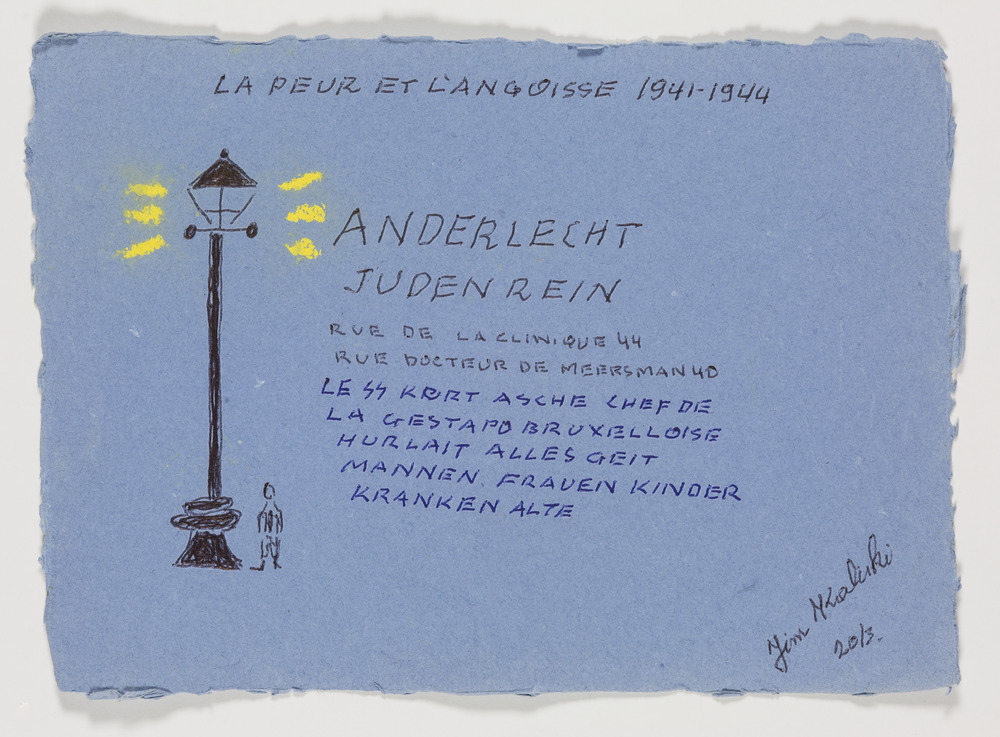 LA PEUR ET L'ANGOISSE 1941-1944
ANDERLECHT
JUDENREIN
RUE DE LA CLINIQUE 44
RUE DOCTEUR DE MEERSMAN 40
LE SS KURT ASCHE CHEF DE
LA GESTAPO BRUXELLOISE
HURLAIT ALLES GEIT
MANNEN. FRAUEN KINDER
KRANKEN ALTE
Jim Kaliski
2013.